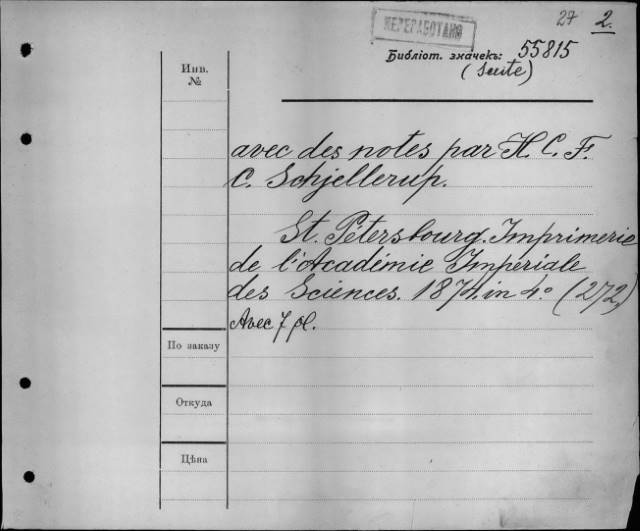 27 2.
ПЕРЕРАБОТАНО
Библіот. значекъ: 55815
(Suite)
Инв.
№
avec des notes par H. C. F.
C. Schjellerup.
St. Pétersbourg. Imprimerie
de l'Académie Impériale
des Sciences. 1874. in 4º (272)
Avec 7 pl.
По заказу
Откуда
Цѣна